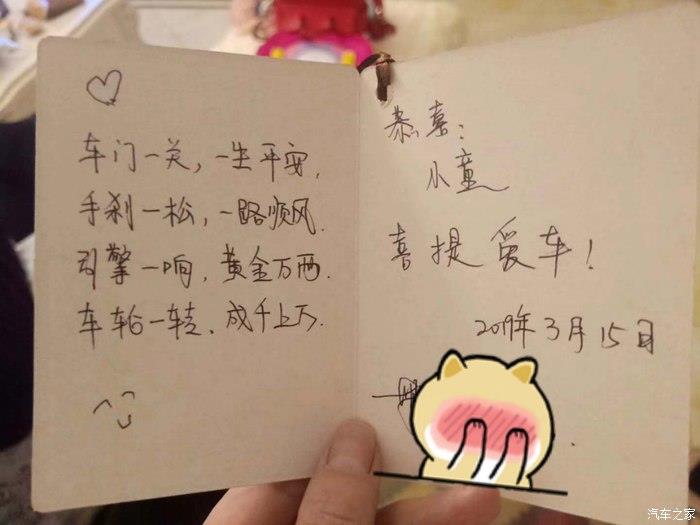 车门一关，一生平安，
手刹一松，一路顺风．
引擎一响，黄金万两．
车轮一转，成千上万．
恭喜：
小童
喜提爱车！
2019年3月15日
汽车之家